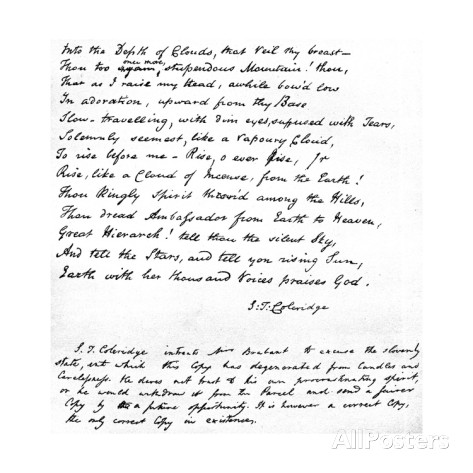 Into the Depth of Clouds, that veil thy breast—
Thou too once more, again, stupendous Mountain! thou,
That as I raise my Head, awhile bow'd low
In adoration, upward from thy Base
Slow-travelling, with dim eyes suffused with Tears,
Solemnly seemest, like a Vapoury Cloud,
To rise before me – Rise, o ever Rise,
Rise, like a Cloud of Incense, from the Earth!
Thou Kingly Spirit thron'd among the Hills,
Thou dread Ambassador from Earth to Heaven,
Great Hierarch! tell thou the silent Sky,
And tell the Stars, and tell yon rising Sun,
Earth with her thousand Voices praises God.
S. T. Coleridge
S. T. Coleridge intreats Mrs Brabant to excuse the slovenly
state, into which this Copy has degenerated from Candles and
Carelessness. He dares not trust to his own procrastinating spirit,
or he would withdraw it from the Parcel and send a fairer
Copy by a future opportunity. It is however a correct Copy,
the only correct Copy in existence.
AllPosters